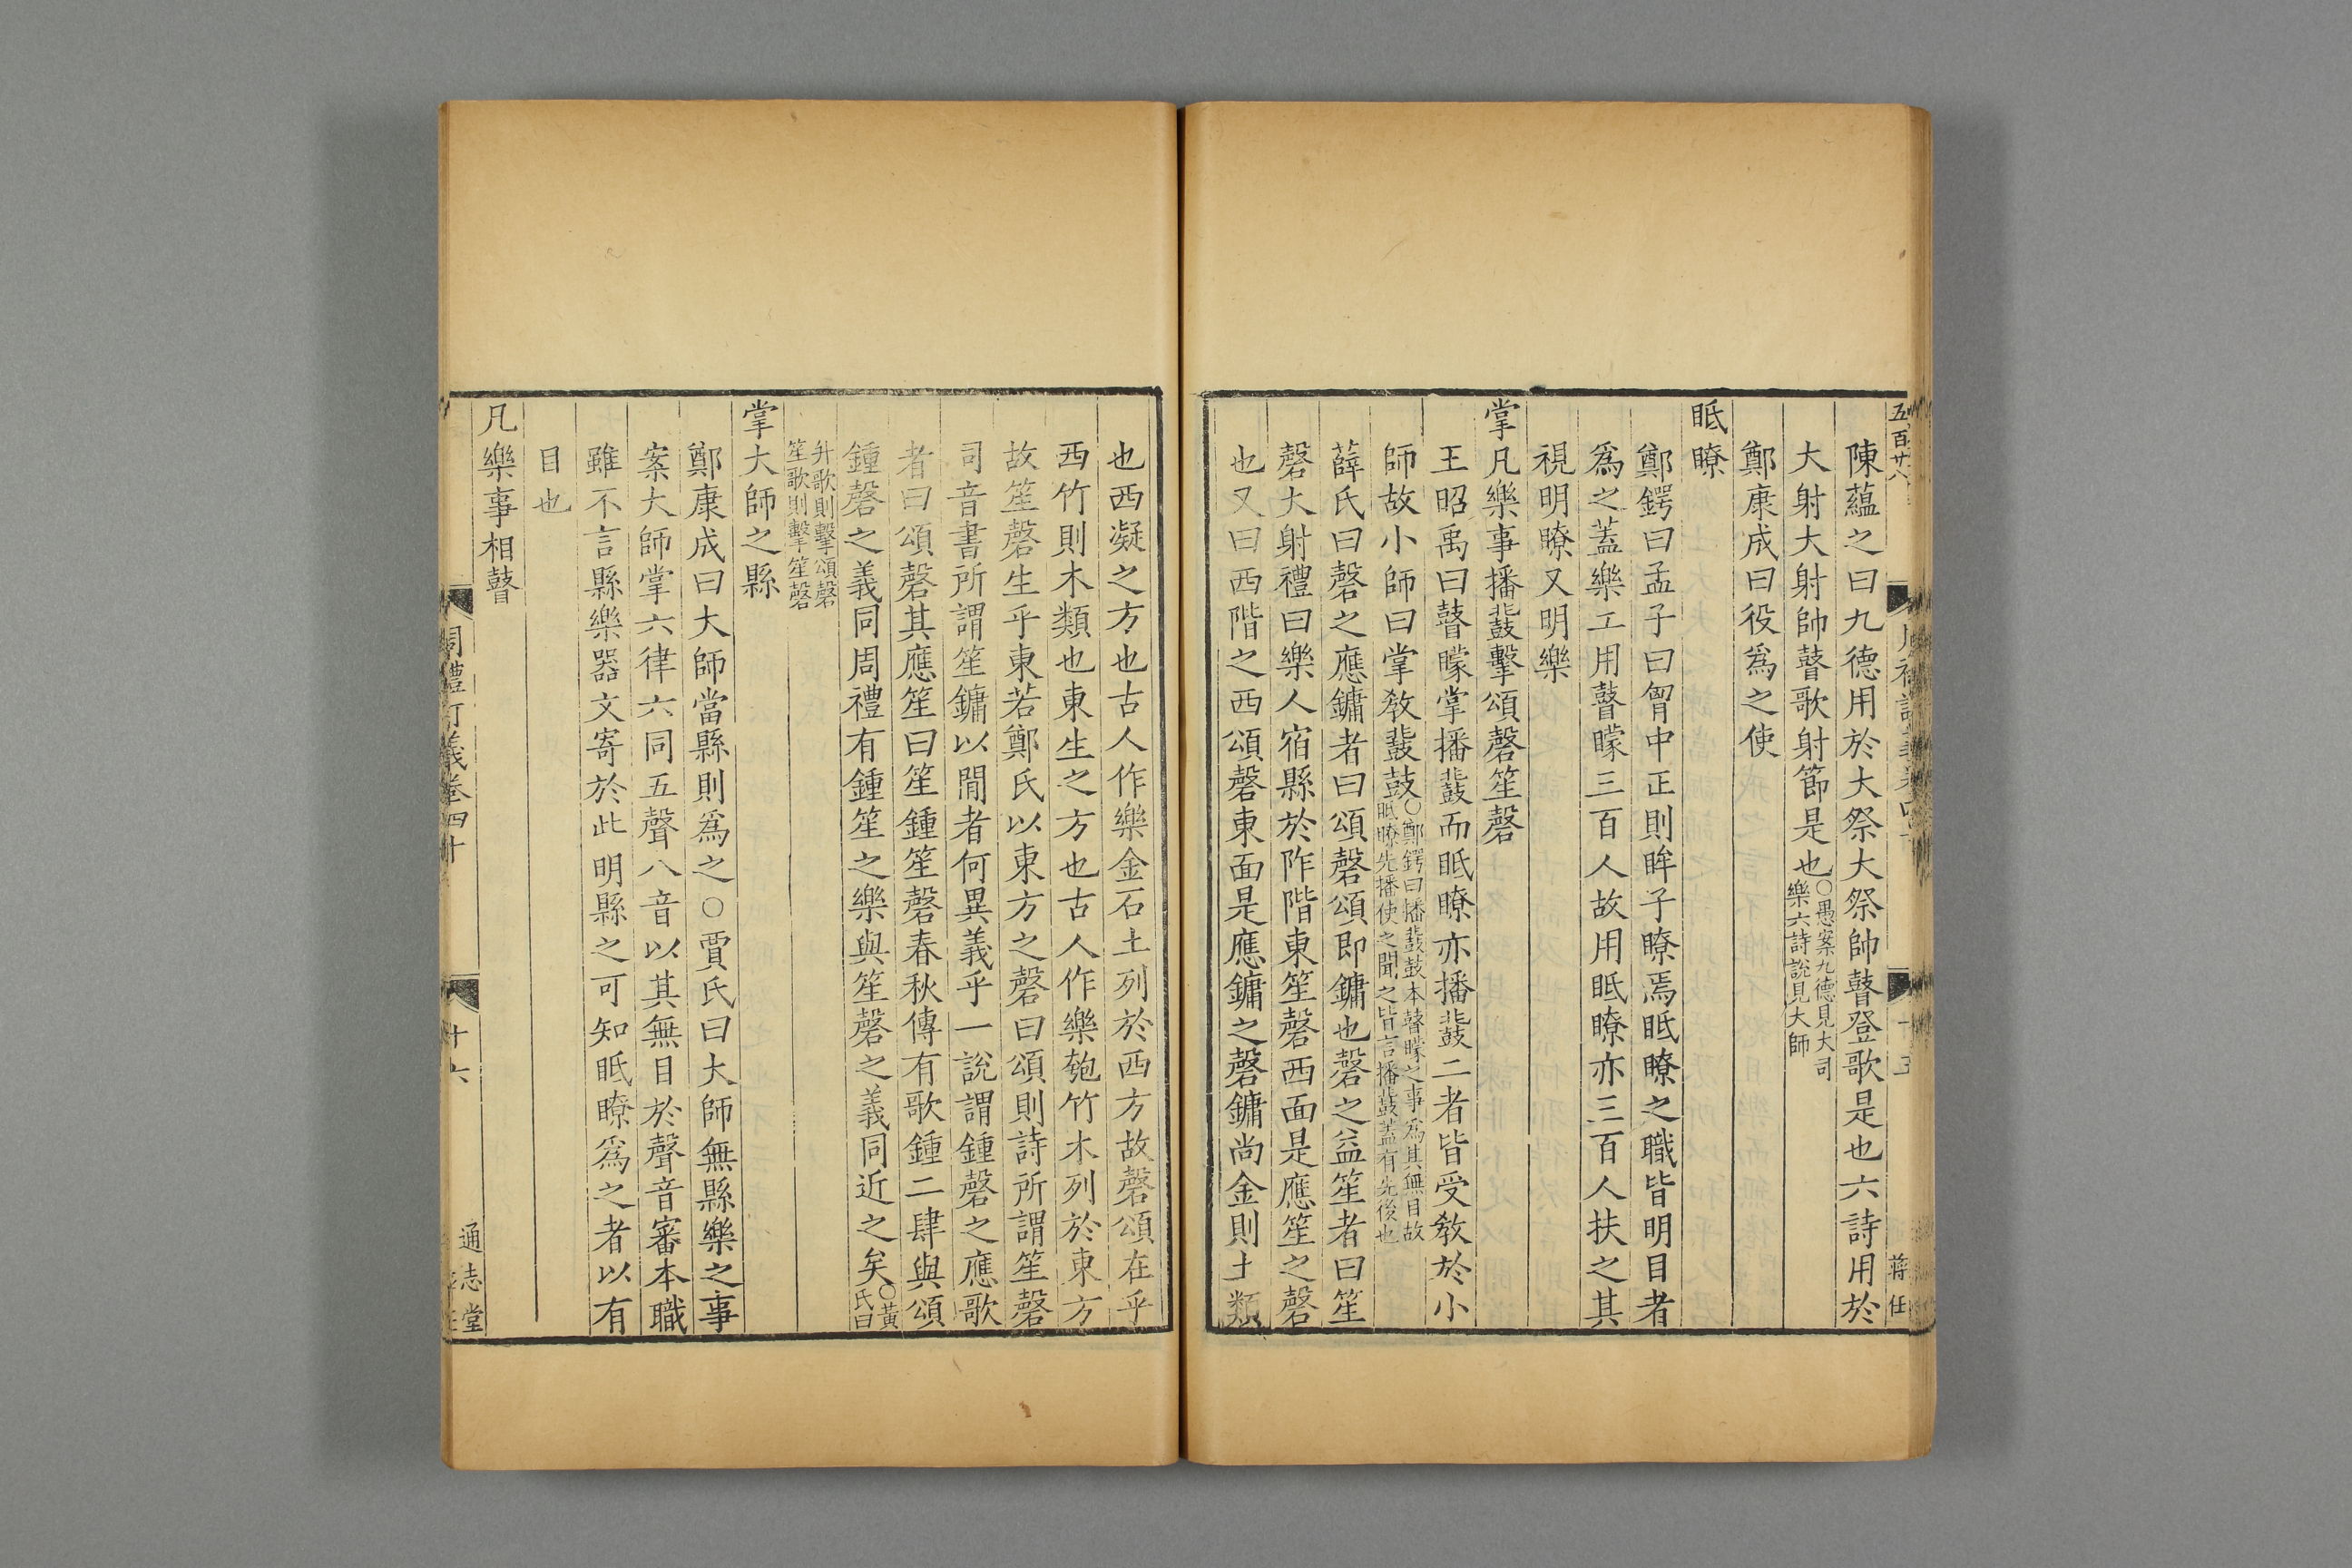 五百廿八
陳蘊之曰九德用於大祭大祭帥瞽登歌是也六詩用於
大射大射帥瞽歌射節是也○愚案九德見大司樂六詩說見大師
鄭康成曰役爲之使
眡瞭
鄭鍔曰孟子曰胷中正則眸子瞭焉眡瞭之職皆明目者
爲之蓋樂工用瞽矇三百人故用眡瞭亦三百人扶之其
視明瞭又明樂
掌凡樂事播鼗擊頌磬笙磬
王昭禹曰瞽矇掌播鼗而眡瞭亦播鼗二者皆受敎於小
師故小師曰掌敎鼗鼓○鄭鍔曰播鼗鼓本瞽矇之事爲其無目故眡瞭先播使之聞之皆言播鼗蓋有先後也
薛氏曰磬之應鏞者曰頌磬頌即鏞也磬之益笙者曰笙
磬大射禮曰樂人宿縣於阼階東笙磬西面是應笙之磬
也又曰西階之西頌磬東面是應鏞之磬鏞尚金則土類
也西凝之方也古人作樂金石土列於西方故磬頌在乎
西竹則木類也東生之方也古人作樂匏竹木列於東方
故笙磬生乎東若鄭氏以東方之磬曰頌則詩所謂笙磬
司音書所謂笙鏞以閒者何異義乎一說謂鍾磬之應歌
者曰頌磬其應笙曰笙鍾笙磬春秋傳有歌鍾二肆與頌
鍾磬之義同周禮有鍾笙之樂與笙磬之義同近之矣○黃氏曰
升歌則擊頌磬笙歌則擊笙磬
掌大師之縣
鄭康成曰大師當縣則爲之○賈氏曰大師無縣樂之事
案大師掌六律六同五聲八音以其無目於聲音審本職
雖不言縣樂器文寄於此明縣之可知眡瞭爲之者以有
目也
凡樂事相瞽
周禮訂義卷四十
十六
通志堂